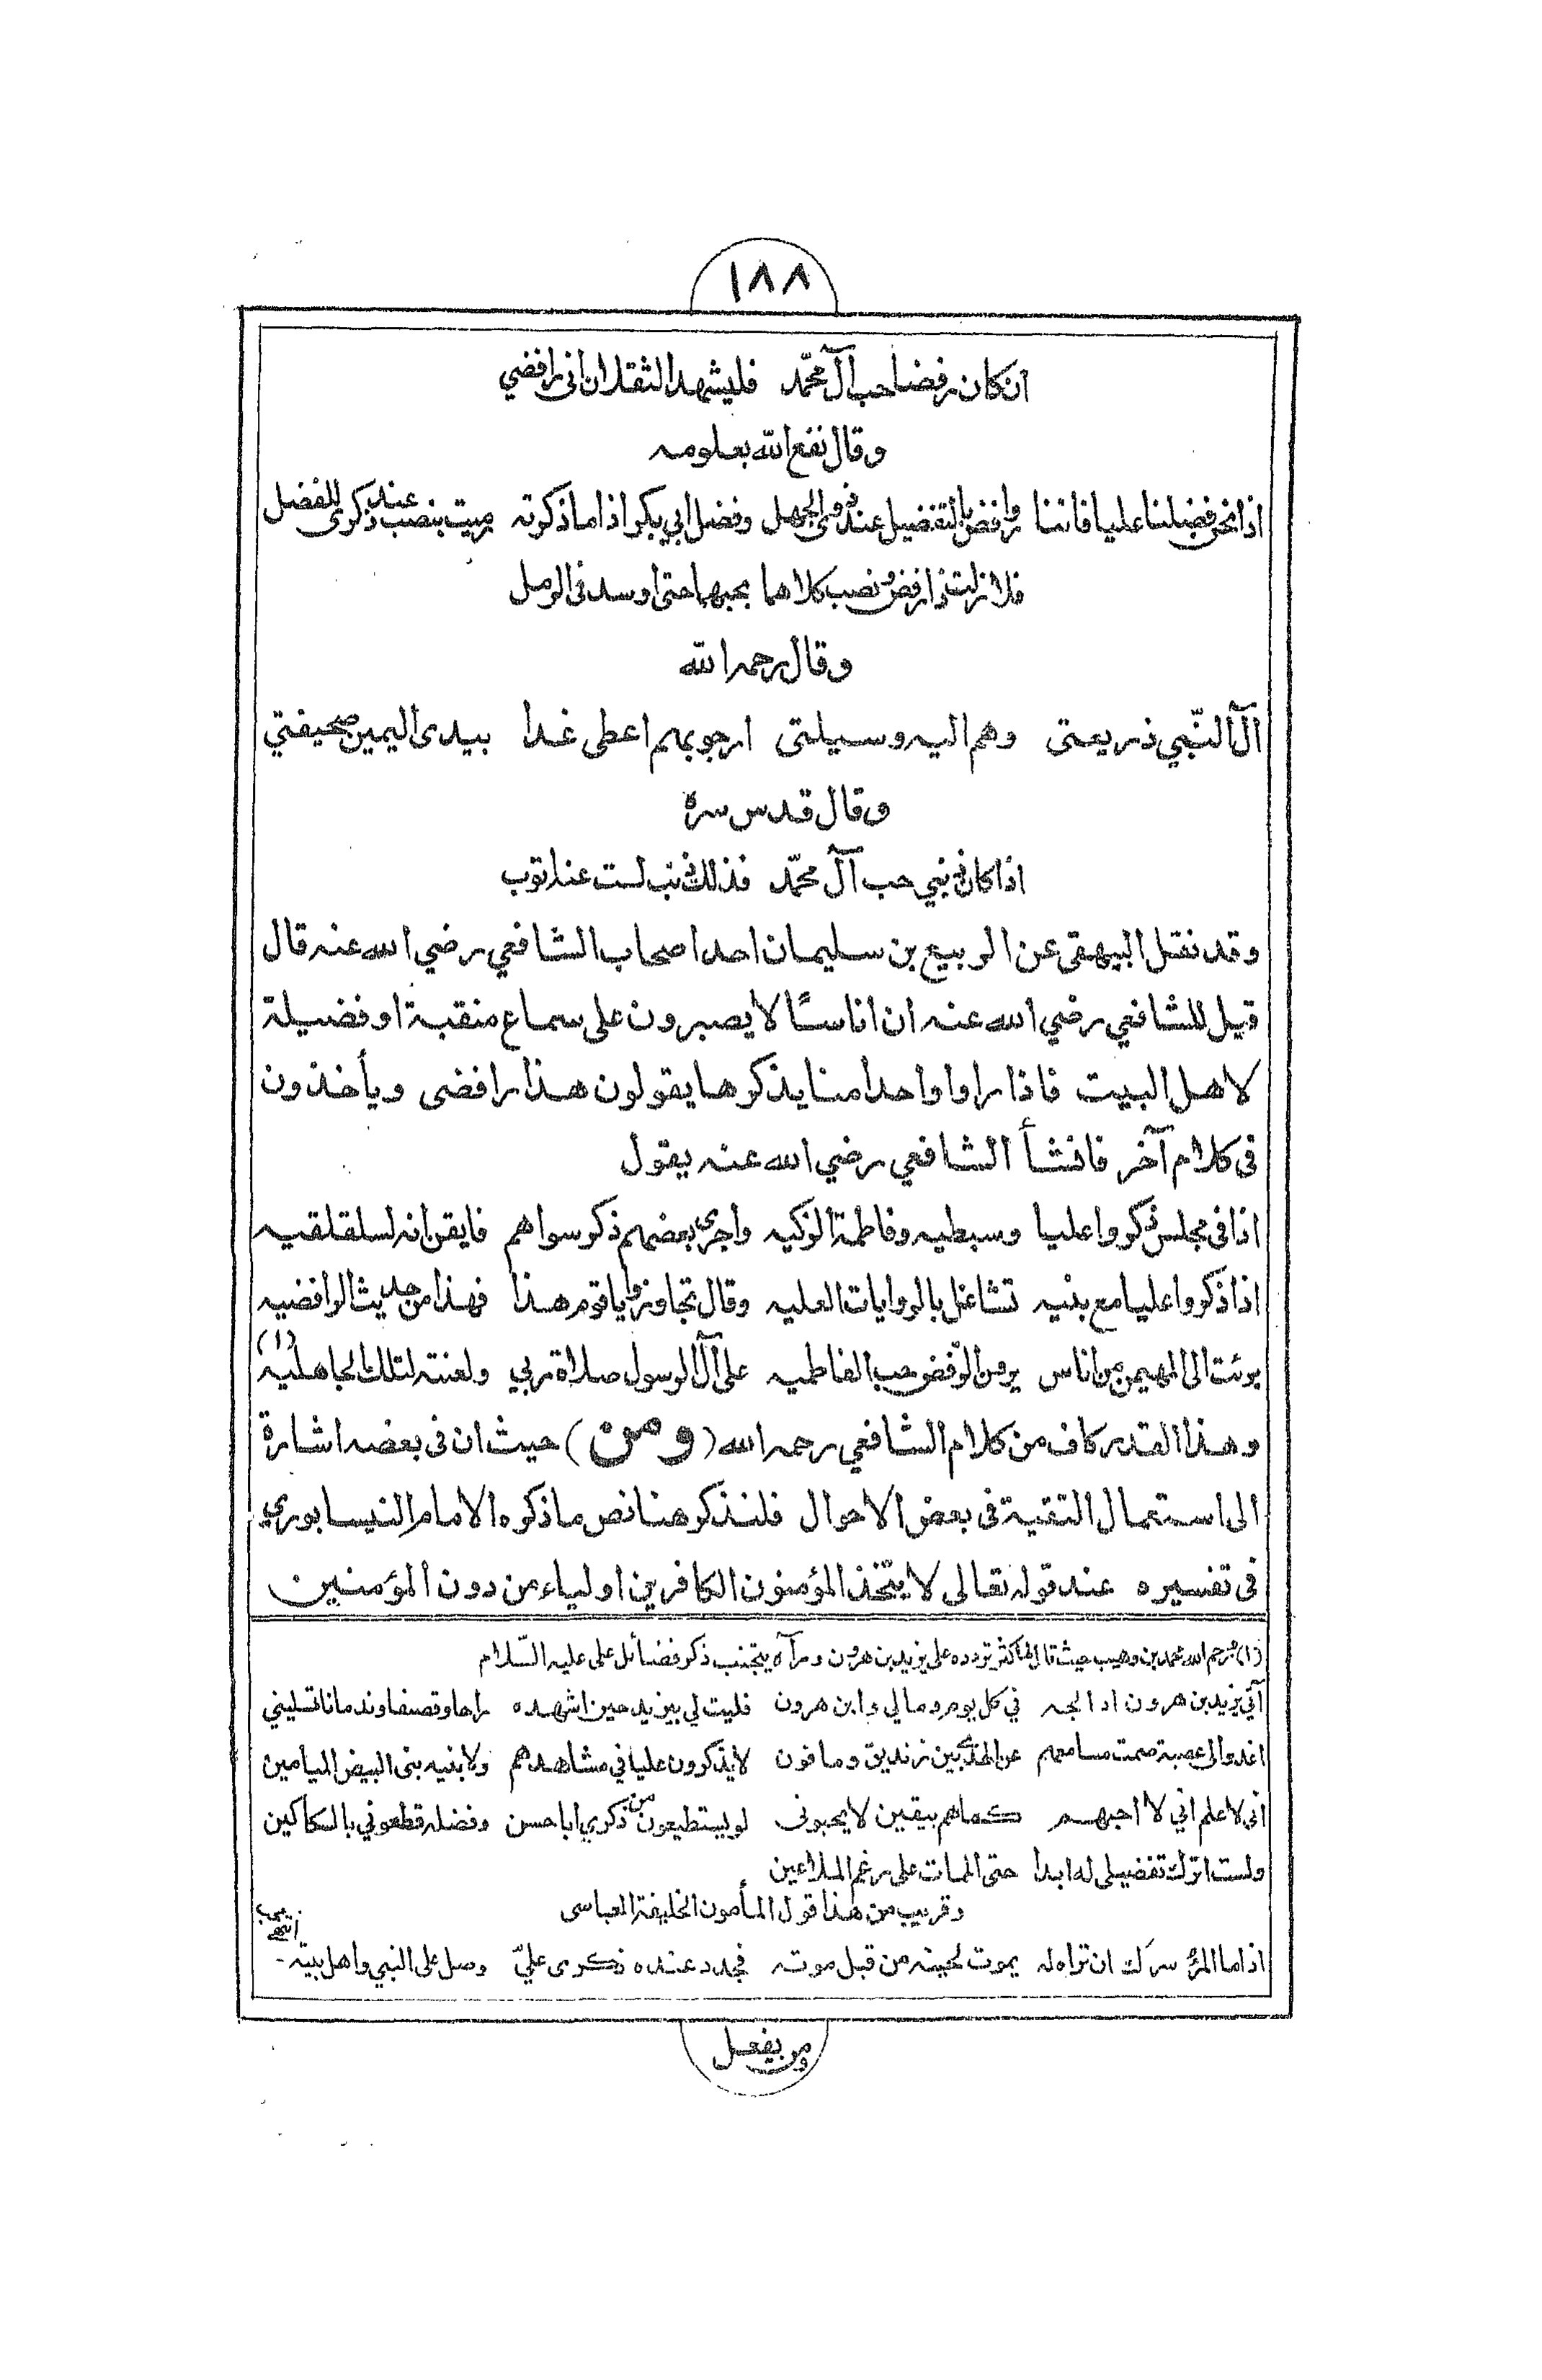 ١٨٨
ان كان رفضا حب آل محمّد فليشهد الثقلان انى رافضي
وقال نفع الله بعلومه
اذا نحن فضلنا عليا فاننا روافض بالتفضيل عند ذوى الجهل وفضل ابي بكر اذا ما ذكرته رميت بنصب عند ذكرى للفضل
فلا زلت ذا رفض ونصب كلاهما بحبهما حتى اوسد فى الرمل
وقال رحمه الله
آل النّبي ذريعتى وهم اليه وسيلتى ارجو بهم اعطى غدا بيدى اليمين صحيفتي
وقال قدس سره
اذا كان ذنبي حب آل محمّد فذلك ذنب لست عنه اتوب
وقد نقل البيهقى عن الربيع بن سليمان احد اصحاب الشافعي رضي الله عنه قال
قيل للشافعي رضي الله عنه ان اناسًا لا يصبرون على سماع منقبة او فضيلة
لاهل البيت فاذا راوا واحدا منا يذكرها يقولون هذا رافضى ويأخذون
فى كلام آخر فانشأ الشافعي رضي الله عنه يقول
اذا فى مجلس ذكروا عليا وسبطيه وفاطمة الزكيه واجرى بعضهم ذكر سواهم فايقن انه لسلقلقيه
اذا ذكروا عليا مع بنيه تشاغل بالروايات العليه وقال تجاوزوا يا قوم هذا فهذا من حديث الرافضيه
برئت الى المهيمن من اناس يرون الرّفض حب الفاطميه على آل الرسول صلاة ربي ولعنته لتلك الجاهليه (١)
وهذا القدر كاف من كلام الشافعي رحمه الله (ومن) حيث ان فى بعضه اشارة
الى استعمال التقية فى بعض الاحوال فلنذكر هنا نص ما ذكره الامام النيسابوري
فى تفسيره عند قوله تعالى لا يتخذ المؤمنون الكافرين اولياء من دون المؤمنين
(١) ورحم الله محمد بن وهيب حيث قال لما كثر تردده على يزيد بن هرون ورآه يتجنب ذكر فضائل على عليه السّلام
آتي يزيد بن هرون ادالجه في كل يوم ومالي وابن هرون فليت لي بيزيد حين اشهده راحا وقصفا وندمانا تسليني
اغدو الى عصبة صمت مسامعهم عن الهدى بين زنديق ومافون لا يذكرون عليا في مشاهدهم ولا بنيه بنى البيض الميامين
انى لاعلم اني لا احبهم كما هم بيقين لا يحبونى لو يستطيعون من ذكري ابا حسن وفضله قطعوني بالسكاكين
ولست اترك تفضيلى له ابدا حتى الممات على رغم الملاعين
وقريب من هذا قول المأمون الخليفة العباسى
اذا ما المرؤ سرك ان تراه له يموت لحينه من قبل موته فجدد عنده ذكرى عليّ وصل على النبي واهل بيته - انتهى
ومن يفعل